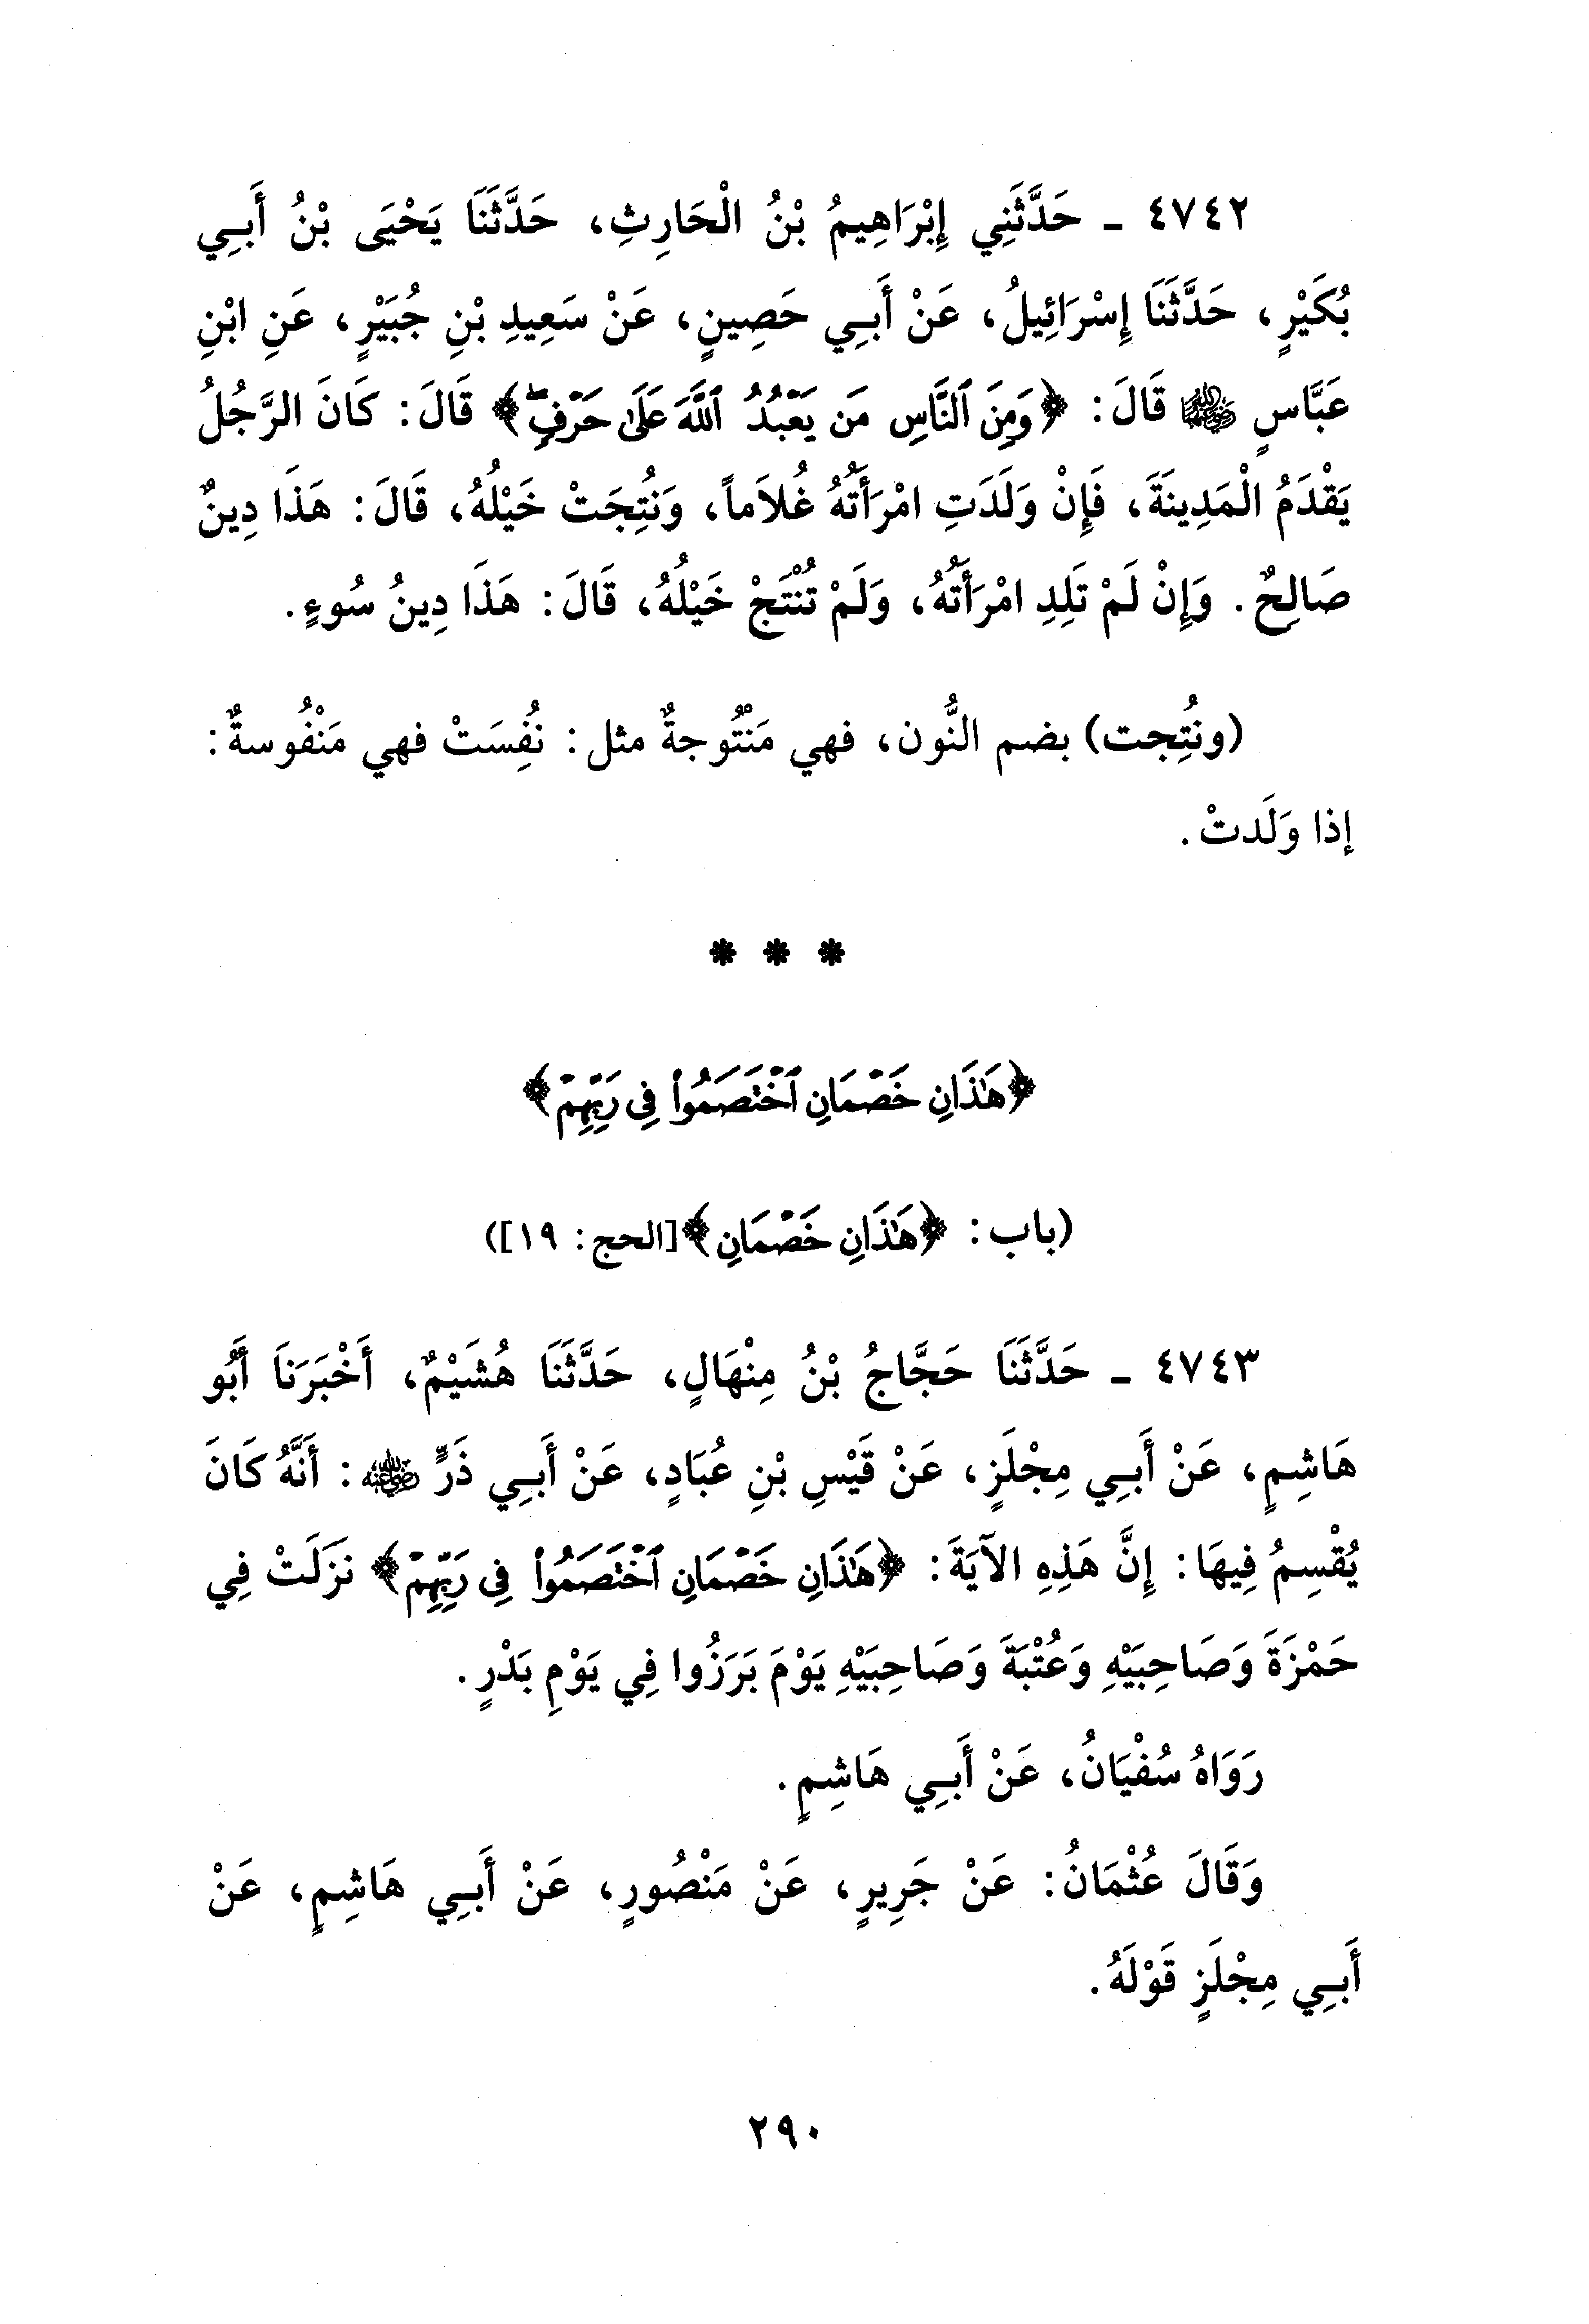 ٤٧٤٢ ـ حَدَّثَنِي إِبْرَاهِيمُ بْنُ الْحَارِثِ، حَدَّثَنَا يَحْيَى بْنُ أَبِي
بُكَيْرٍ، حَدَّثَنَا إِسْرَائِيلُ، عَنْ أَبِي حَصِينٍ، عَنْ سَعِيدِ بْنِ جُبَيْرٍ، عَنِ ابْنِ
عَبَّاسٍ رضي الله عنهما قَالَ: ﴿وَمِنَ ٱلنَّاسِ مَن يَعۡبُدُ ٱللَّهَ عَلَىٰ حَرۡفٖۖ﴾ قَالَ: كَانَ الرَّجُلُ
يَقْدَمُ الْمَدِينَةَ، فَإِنْ وَلَدَتِ امْرَأَتُهُ غُلاَماً، وَنُتِجَتْ خَيْلُهُ، قَالَ: هَذَا دِينٌ
صَالِحٌ. وَإِنْ لَمْ تَلِدِ امْرَأَتُهُ، وَلَمْ تُنْتَجْ خَيْلُهُ، قَالَ: هَذَا دِينُ سُوءٍ.
(ونُتِجت) بضم النُّون، فهي مَنْتُوجةٌ مثل: نُفِسَتْ فهي مَنْفُوسةٌ:
إذا وَلَدتْ.
* * *
﴿هَٰذَانِ خَصۡمَانِ ٱخۡتَصَمُواْ فِي رَبِّهِمۡ﴾
(باب: ﴿هَٰذَانِ خَصۡمَانِ﴾[الحج: ١٩])
٤٧٤٣ ـ حَدَّثَنَا حَجَّاجُ بْنُ مِنْهَالٍ، حَدَّثَنَا هُشَيْمٌ، أَخْبَرَنَا أَبُو
هَاشِمٍ، عَنْ أَبِي مِجْلَزٍ، عَنْ قَيْسِ بْنِ عُبَادٍ، عَنْ أَبِي ذَرٍّ رضي الله عنه: أَنَّهُ كَانَ
يُقْسِمُ فِيهَا: إِنَّ هَذِهِ الآيَةَ: ﴿هَٰذَانِ خَصۡمَانِ ٱخۡتَصَمُواْ فِي رَبِّهِمۡ﴾ نَزَلَتْ فِي
حَمْزَةَ وَصَاحِبَيْهِ وَعُتْبَةَ وَصَاحِبَيْهِ يَوْمَ بَرَزُوا فِي يَوْمِ بَدْرٍ.
رَوَاهُ سُفْيَانُ، عَنْ أَبِي هَاشِمٍ.
وَقَالَ عُثْمَانُ: عَنْ جَرِيرٍ، عَنْ مَنْصُورٍ، عَنْ أَبِي هَاشِمٍ، عَنْ
أَبِي مِجْلَزٍ قَوْلَهُ.
٢٩٠